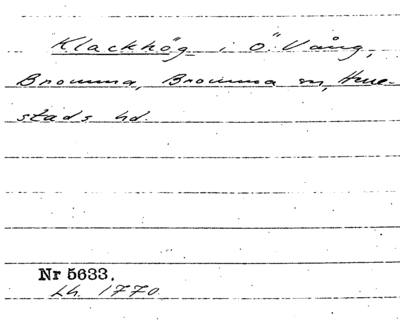 Klackhög i Ö. Vång,
Bromma, Bromma sn, Herre-
stads hd.
Nr 5633.
Lh. 1770.